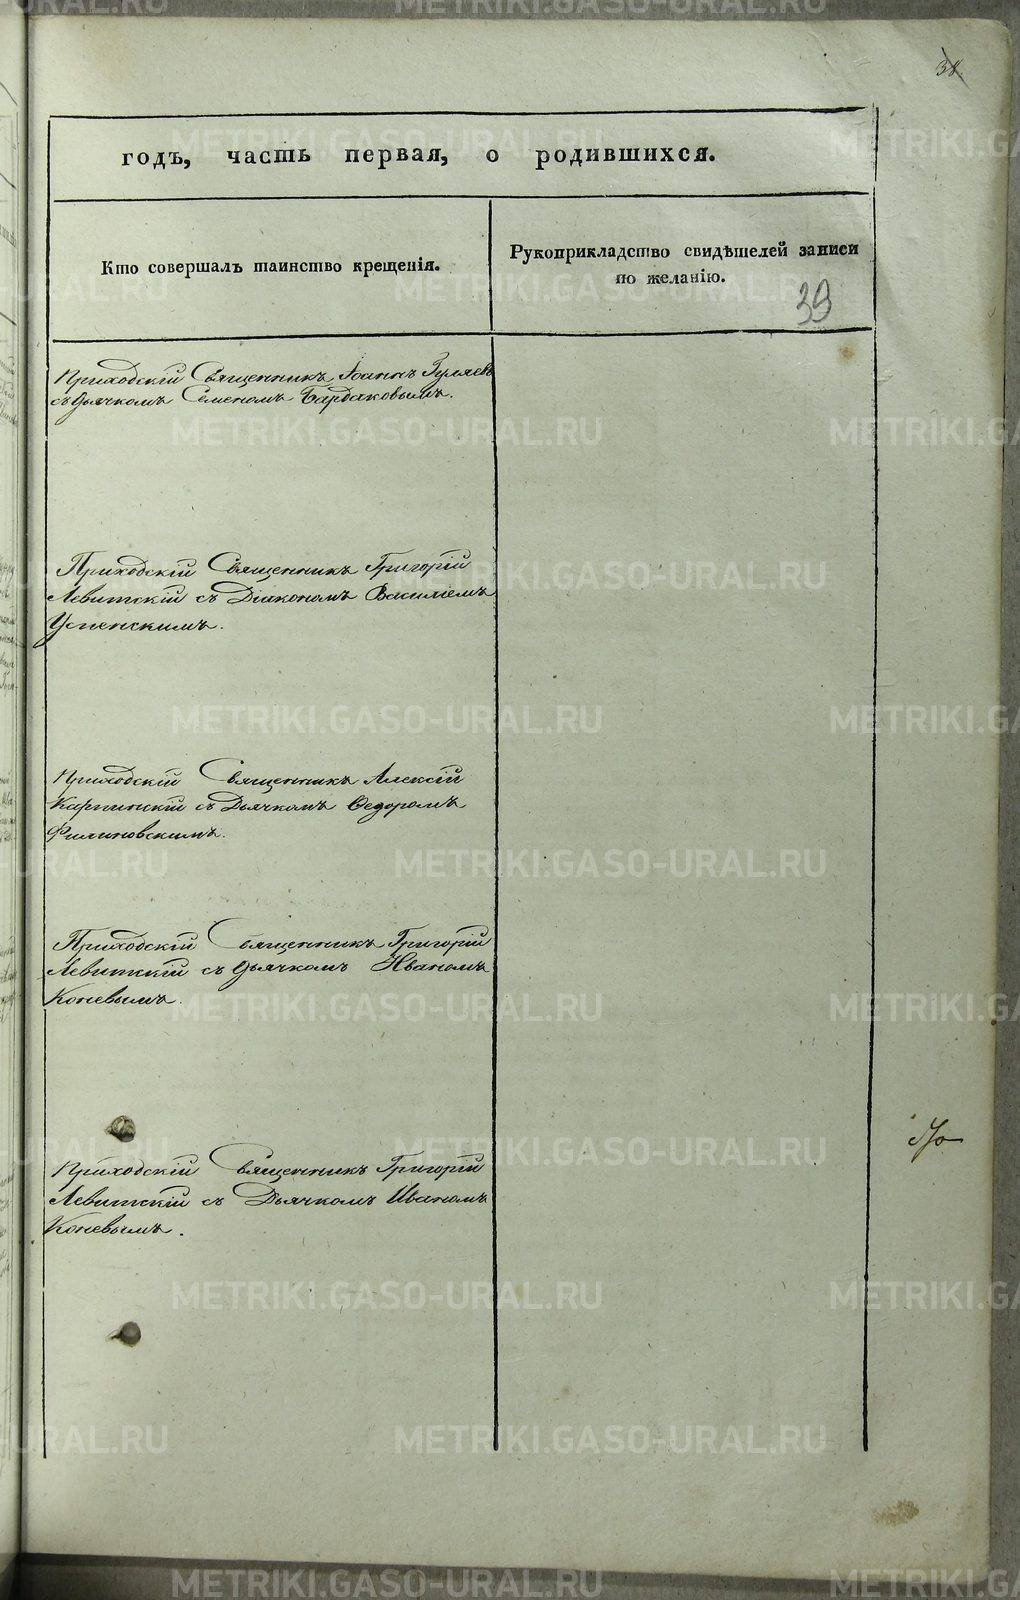 38.
годъ, часть первая, о родившихся.
Кто совершалъ таинство крещенія.
Рукоприкладство свидѣтелей записи
по желанію.
39
Приходскій Священникъ Іоаннъ Гуляевъ
съ дьячкомъ Семеномъ Бардаковымъ.
Приходскій Священникъ Григорій
Левитскій съ Діакономъ Василіемъ
Успенскимъ.
Приходскій Священникъ Алексій
Карпинскій съ Дьячкомъ Ѳедоромъ
Филиновскимъ.
Приходскій Священникъ Григорій
Левитскій съ дьячкомъ Иваномъ
Коневымъ.
Приходскій Священникъ Григорій
Левитскій съ Дьячкомъ Иваномъ
Коневымъ.
METRIKI.GASO-URAL.RU